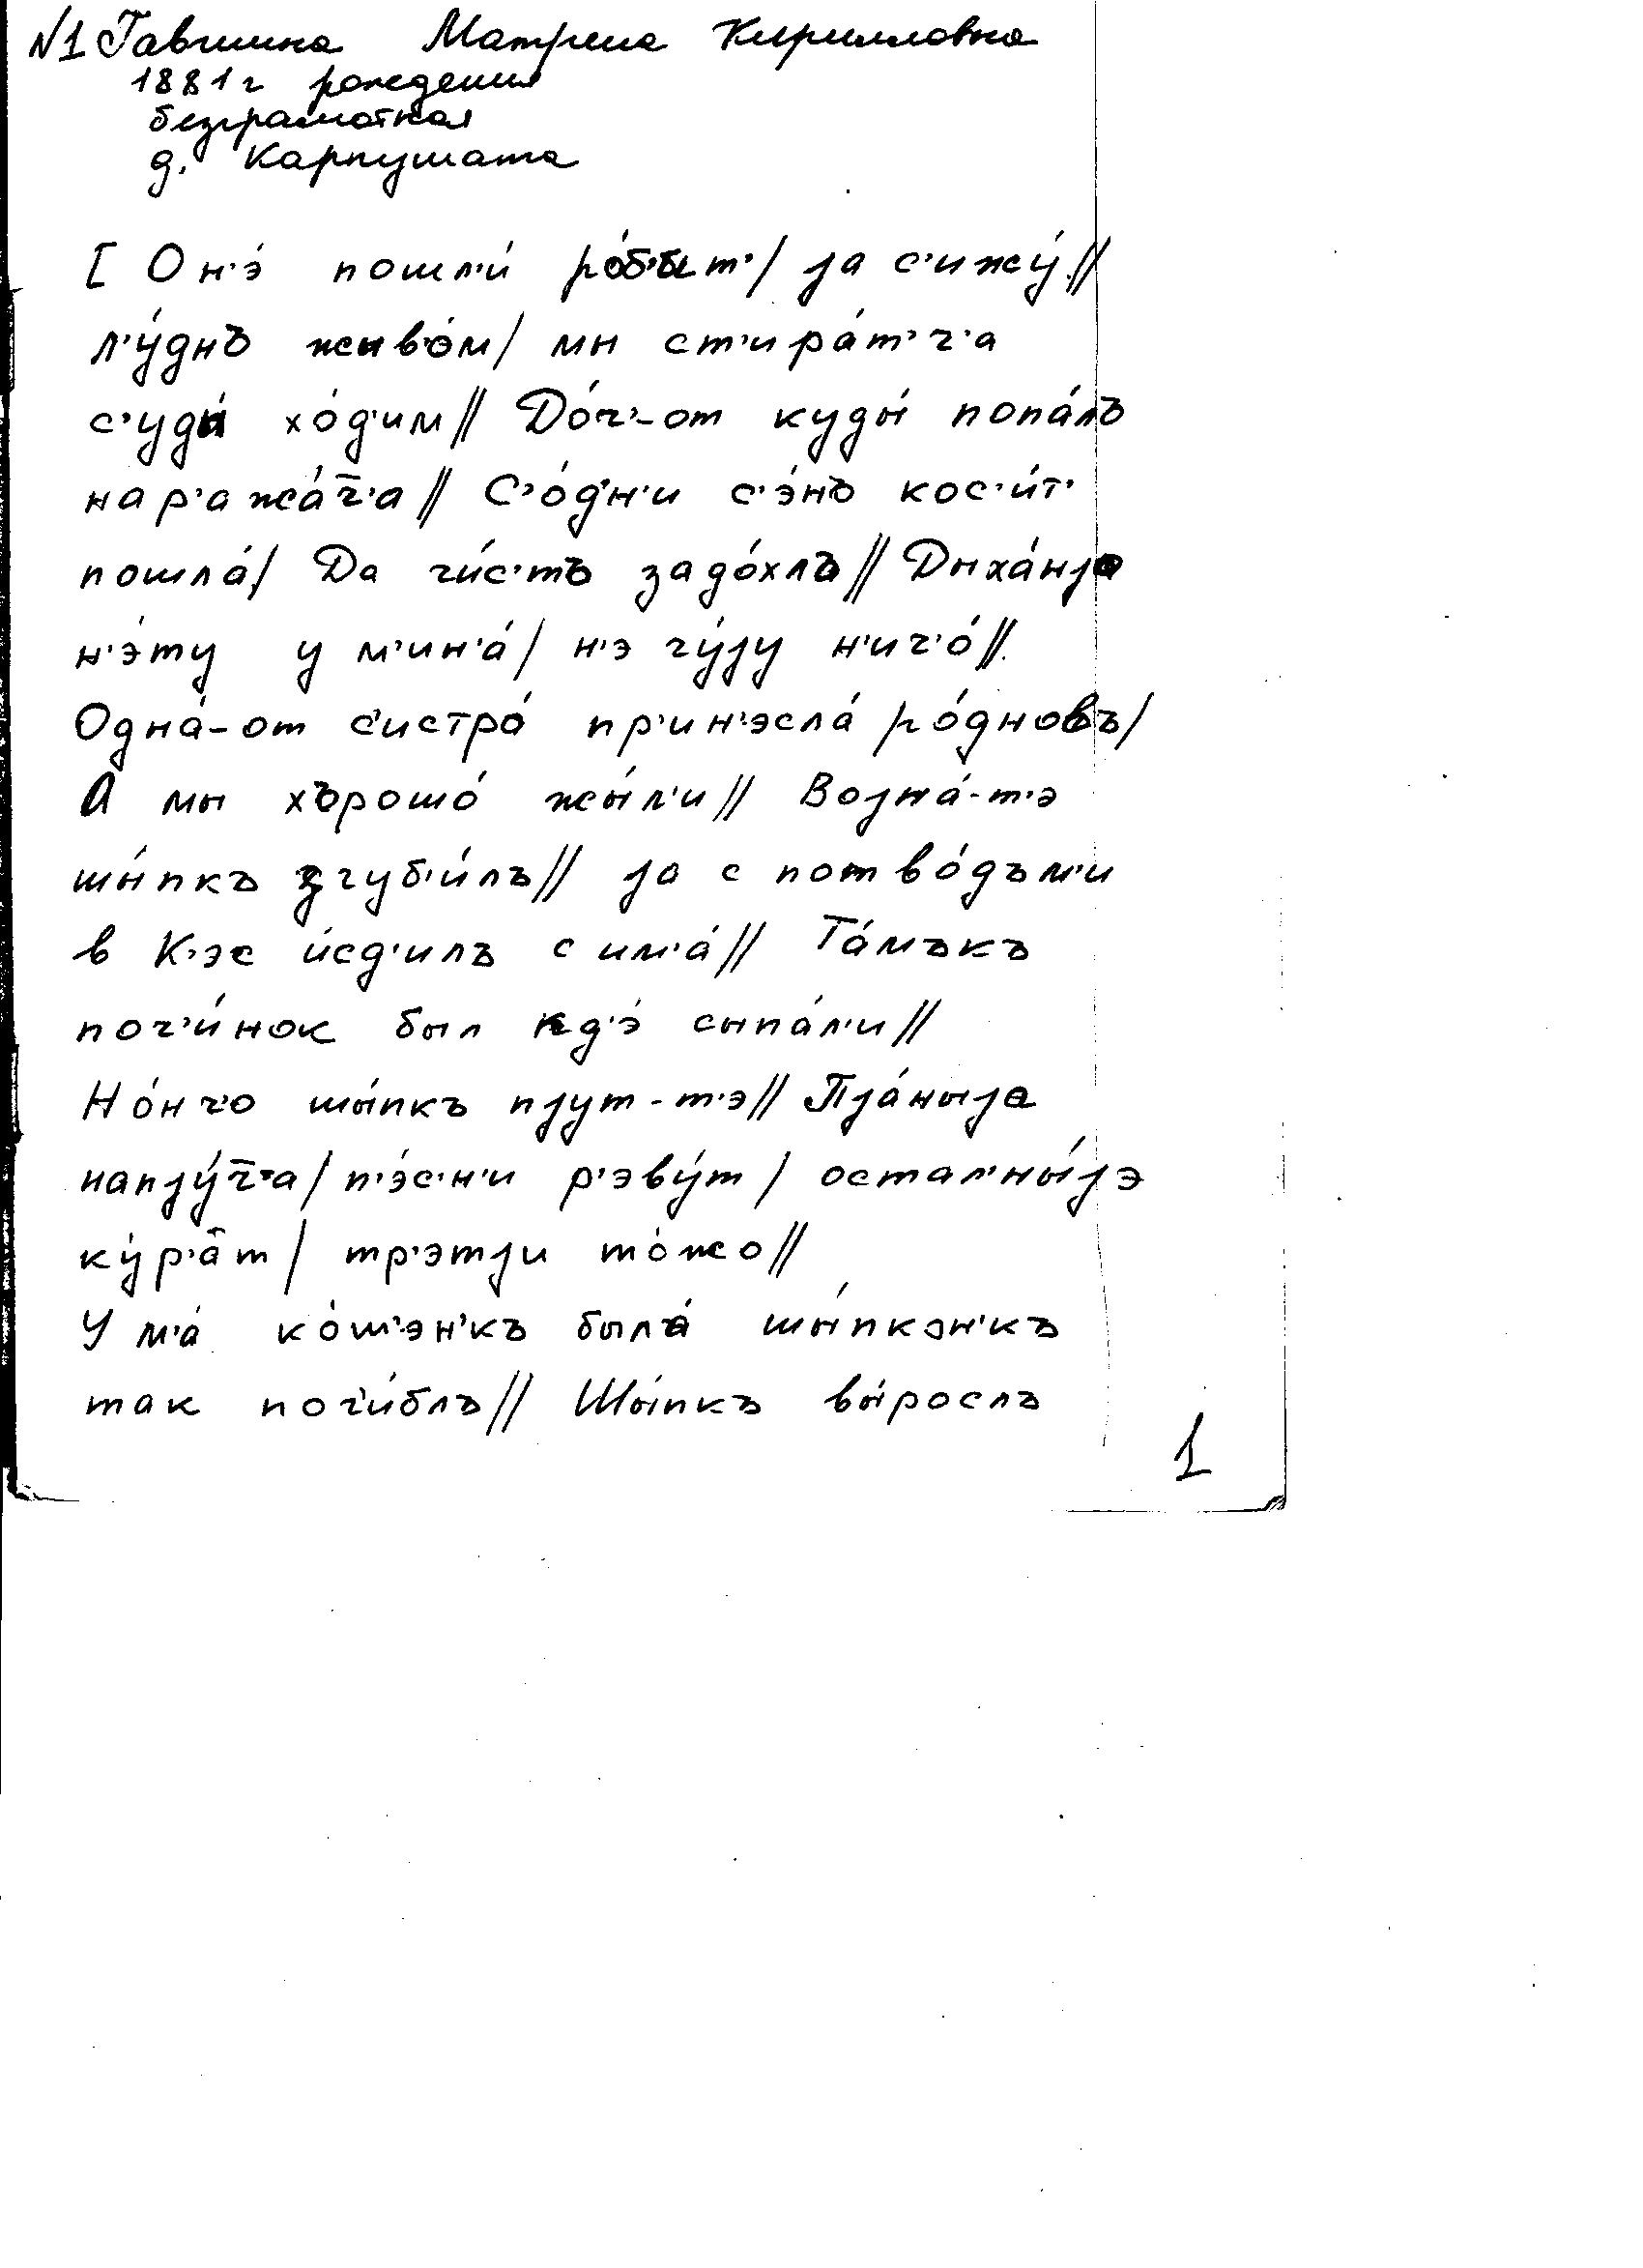 N1 Гавшина Матрена Кирилловна
1881 г рождения
безграмотная
д. Карпушата
[ Он'э́ пошл'и́ ро́б'ыт'/ jа с'ижу́//
л'у́днъ жыво́м/ мы ст'ира́т'ч'а
с'уды́ хо́д'им// До́ч'-от куды́ попа́лъ
нар'ажа́ч̄'а// С'о́дн'и с'э́нъ кос'и́т'
пошла́/ Да чи́с'тъ задо́хлъ// Дыха́нjо
н'э́ту у м'ин'а́/ н'э чу́jу н'ич'о́//
Одна́-от с'истра́ пр'ин'эсла́ ро́дновъ/
А мы хърошо́ жы́л'и// Воjна́-т'э
шы́пкъ згуб'и́лъ// jа с потво́дъм'и
в К'эс и́сд'илъ с им'а́// Та́мъкъ
поч'и́нок был кд'э́ сыпа́л'и//
Но́нч'о шы́пкъ пjут-т'э// Пjа́ныjа
напjу́ч̄'а/ п'э́с'н'и р'эву́т/ остал'ны́jэ
ку́р'а̂т/ тр'этjи то́жо//
У м'а́ ко́ш'эн'къ была́ шы́пкэн'къ
так поги́блъ// Шы́пкъ вы́рослъ
1